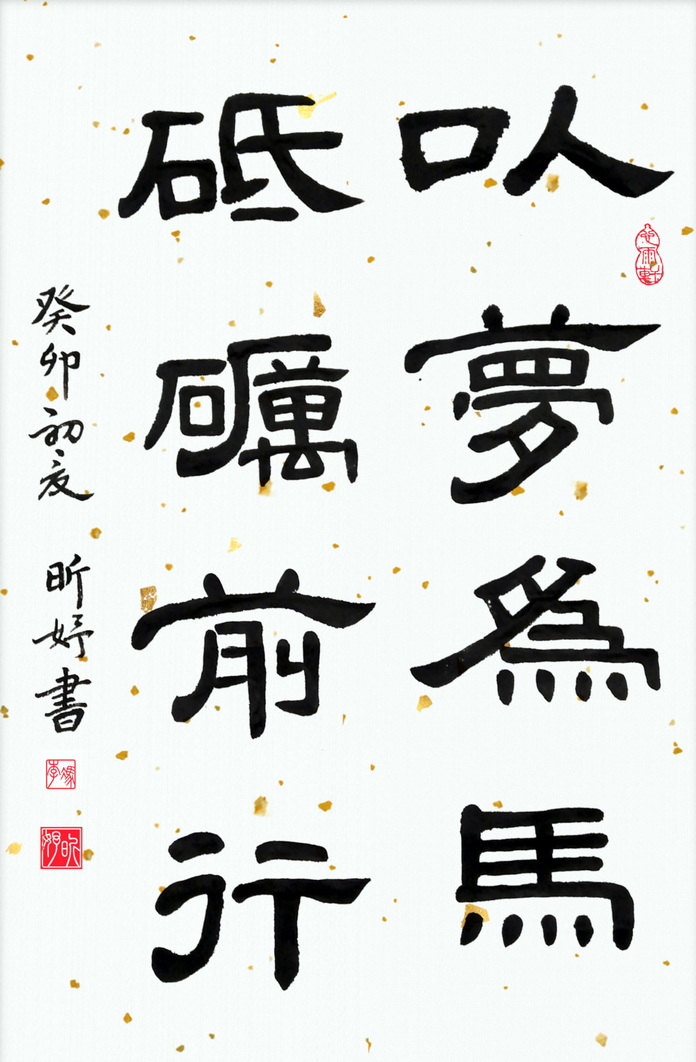 以夢為馬
砥礪前行
癸卯初夏 昕妤書